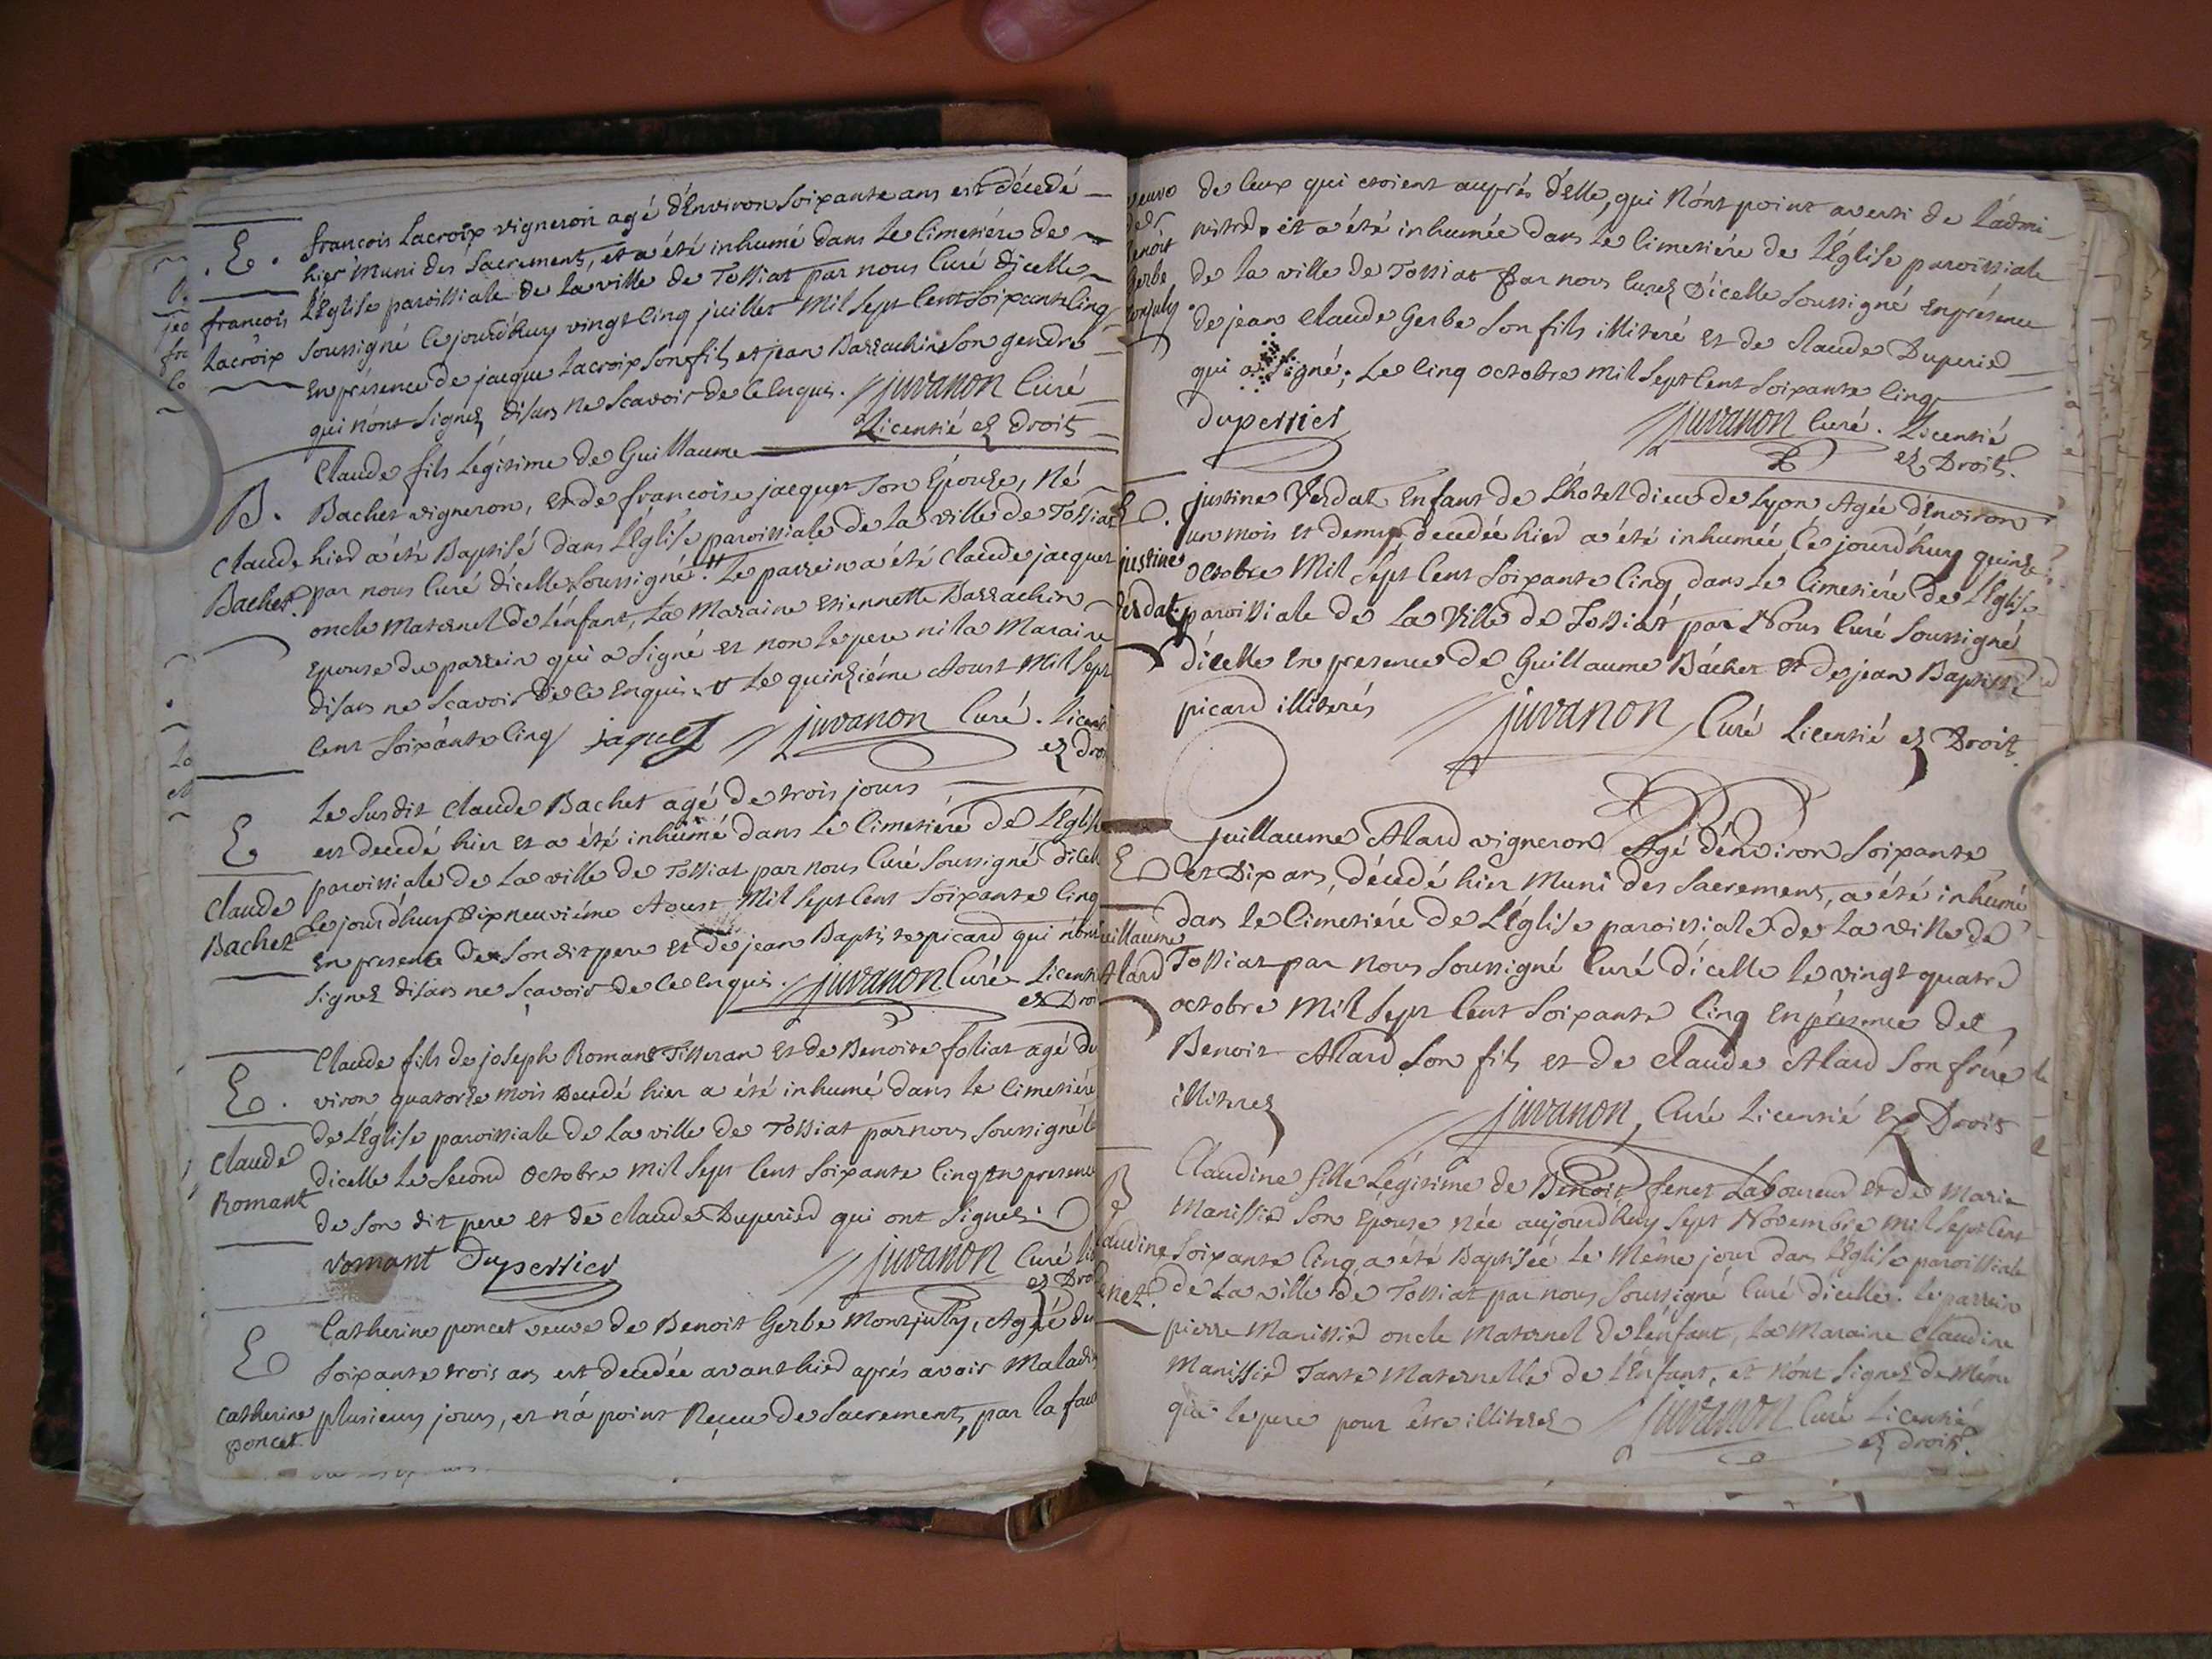 E. françois Lacroix vigneron agé d'Environ Soixante ans est décedé
hier Muni des Sacrements, et a été inhumé dans Le Cimetiére de
françois L'Eglise paroissiale de la ville de Tossiat par nous Curé d'icelle
Lacroix Soussigné Cejourd'huy vingt Cinq juillet Mil Sept Cent Soixante Cinq
En présence de jacque Lacroix Son fils et jean Barrachin Son gendre
qui n'ont Signéz disans Ne Scavoir de Ce Enquis. juvanon Curé
Licentié ez Droits
Claude fils Légitime de Guillaume
B. Bachet vigneron, et de francoise jacquet Son Epouze, Né
Claude hier a été Baptisé dans L'Eglise paroissiale de la ville de Tossiat
Bachet. par nous Curé d'icelle Soussigné. Le parrein a été Claude jacquet
oncle Maternel de L'enfant, La Maraine Etiennette Barrachin
Epouse du parrein qui a Signé et non Le pere ni la Maraine
disans ne Scavoir de Ce Enquis Le quinziéme Aoust Mil Sept
Cent Soixante Cinq jaquet juvanon Curé. Licenti
ez Droi
Le Susdit Claude Bachet agé de trois jours
E est decedé hier et a été inhumé dans Le Cimetiére de L'Eglise
paroissiale de La ville de Tossiat par nous Curé Soussigné dicell
Claude Cejourd'huy Dixneuviéme Aoust Mil Sept Cent Soixante Cinq
Bachet En presence de Son dit pere et de jean Baptiste picard qui n'ont
Signez disans ne Scavoir de Ce Enquis. juvanon Curé Licenti
ez Droi
Claude fils de joseph Romant Tisseran et de Benoite foliat agé d'e
E. viron quatorze mois Decedé hier a été inhumé dans Le Cimetiére
de L'Eglise paroissiale de La ville de Tossiat par nous Soussigné C
Claude dicelle Le Second Octobre Mil Sept Cent Soixante Cinq En presence
Romant de Son dit pere et de Claude Duperier qui ont Signez.
romant Duperrier juvanon Curé Li
ez Droi
E Catherine poncet veuve de Benoit Gerbe Montjuly, Agée de
Soixante trois ans est decedée avant hier aprés avoir Maladie
Catherine plusieurs jours, et n'a point Reçue de Sacrements, par la faut
poncet
veuve de Ceux qui etoient auprés d'Elle, qui N'ont point averti de L'admi
de nistrer et a été inhumée dans Le Cimetiére de L'Eglise paroissiale
enoit de La ville de Tossiat par nous Curéz D'icelle Soussigné En présence
Gerbe de jean Claude Gerbe Son fils illiteré Et de Claude Duperier
qui a Signé; Le Cinq Octobre Mil Sept Cent Soixante Cinq
duperrier juvanon Curé. Licentié
ez Droits.
E. justine Verdat Enfant de L'hotel dieu de Lyon Agée d'Environ
un mois et demy, decedée hier a été inhumée Ce jourd'huy quinze
justine Octobre Mil Sept Cent Soixante Cinq, dans Le Cimetiére de L'Eglise
verdat paroissiale de La Ville de Tossiat par Nous Curé Soussigné
d'icelle En presence de Guillaume Bachet et de jean Baptiste
picard illiterés juvanon Curé Licentié ez Droits
Guillaume Alard vigneron Agé d'environ Soixante
E et Dix ans, décedé hier Muni des Sacrements, a été inhumé
uillaume dans le Cimetiére de L'Eglise paroissiale de La ville de
Alard Tossiat par nous Soussigné Curé d'icelle le vingt quatre
octobre Mil Sept Cent Soixante Cinq En présence de
Benoit Alard Son fils et de Claude Alard Son frere
illiterez juvanon, Curé Licentié Ez Droits
Claudine fille Légitime de Benoit fenet Laboureur et de Marie
B Manissier Son Epouse, Née aujourd'huy Sept Novembre Mil Sept Cent
laudine Soixante Cinq, a été Baptisée Le Même jour dans L'Eglise paroissiale
enet. de La ville de Tossiat par nous Soussigné Curé dicelle. Le parrein
pierre Manissier oncle Maternel de L'enfant, La Maraine Claudine
Manissier Tante Maternelle de L'Enfant, et N'ont Signez de Même
que le pere pour être illiterez juvanon Curé Licentié
ez Droits.